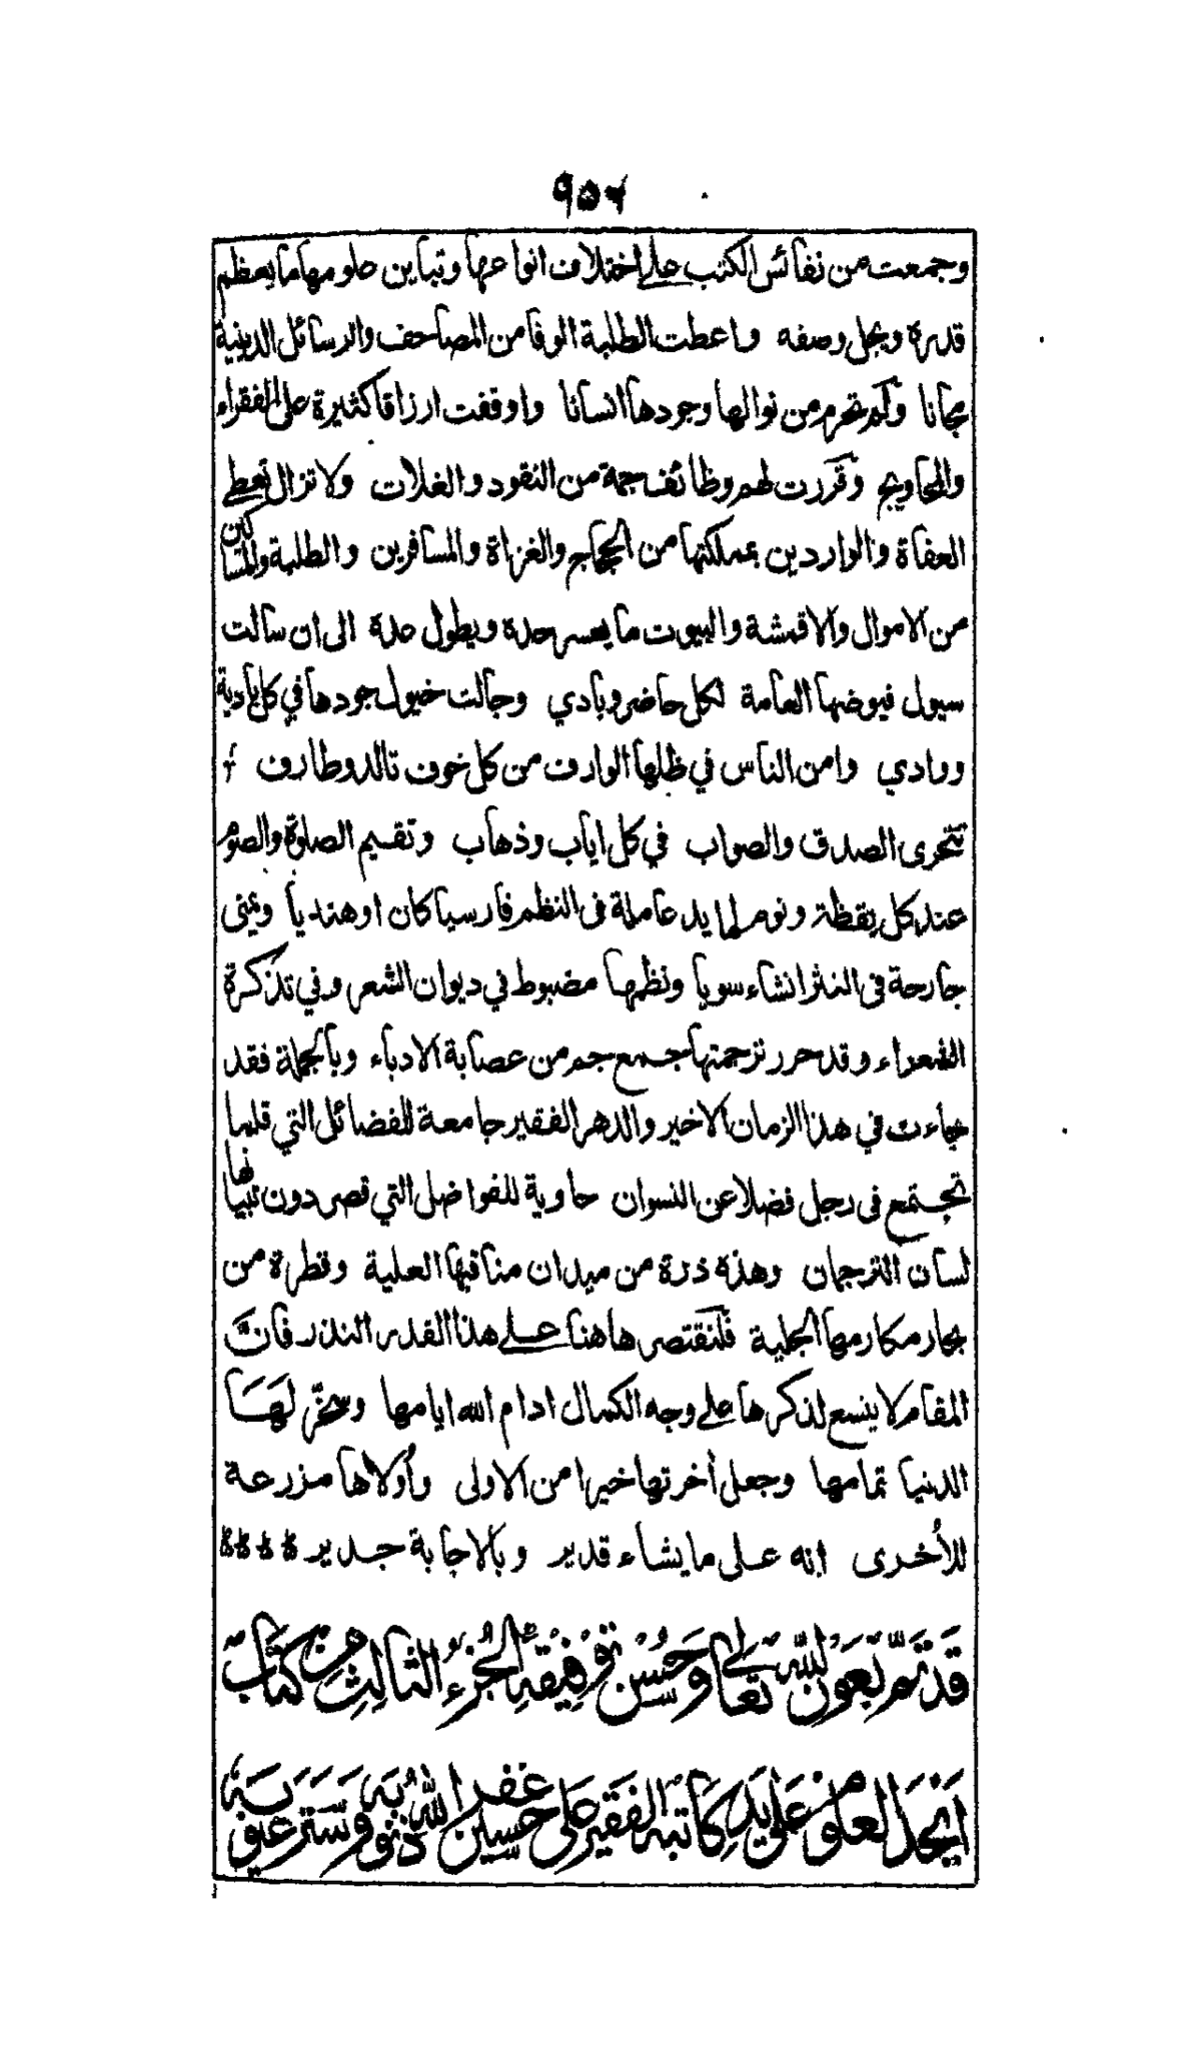 ٩٥٦
وجمعت من نفائس الكتب على اختلاف انواعها وتباين علومها ما يعظم
قدره ويجل وصفه واعطت الطلبة الوفا من المصاحف والرسائل الدينية
مجانا ولم تحرم من نوالها وجودها انسانا واوقفت ارزاقا كثيرة على الفقراء
والمحاويج وقررت لهم وظائف جمة من النقود والغلات ولا تزال تعطي
العفاة والواردين بمملكتها من الحجاج والغزاة والمسافرين والطلبة والمساكين
من الاموال والاقمشة والبيوت ما يعسر حده ويطول عده الى ان سالت
سيول فيوضها العامة لكل حاضر وبادي وجالت خيول جودها في كل بادية
ووادي وامن الناس في ظلها الوارف من كل خوف تالد وطارف
تتحرى الصدق والصواب في كل اياب وذهاب وتقيم الصلوة والصوم
عند كل يقظة ونوم لها يد عاملة فى النظم فارسيا كان او هنديا ويمنى
جارحة فى النثر انشاء سويا ونظمها مضبوط في ديوان الشعر وفي تذكرة
الشعراء وقد حرر ترجمتها جمع جم من عصابة الادباء وبالجملة فقد
جاءت في هذا الزمان الاخير والدهر الفقير جامعة للفضائل التي قلما
تجتمع فى رجل فضلا عن النسوان حاوية للفواضل التي قصر دون تبيانها
لسان الترجمان وهذه ذرة من ميدان مناقبها العلية وقطرة من
بحار مكارمها الجلية فلنقتصر هاهنا على هذا القدر النذر فان
المقام لا يتسع لذكرها على وجه الكمال ادام الله ايامها وسخّر لها
الدنيا تمامها وجعل أخرتها خيرا من الاولى وأولاها مزرعة
للأخرى انه على ما يشاء قدير وبالاجابة جدير
قد تم بعون الله تعالى وحسن توفيقه الجزء الثالث من كتاب
ابجد العلوم على يد كاتبه الفقير على حسين غفر الله ذنوبه وستر عيوبه